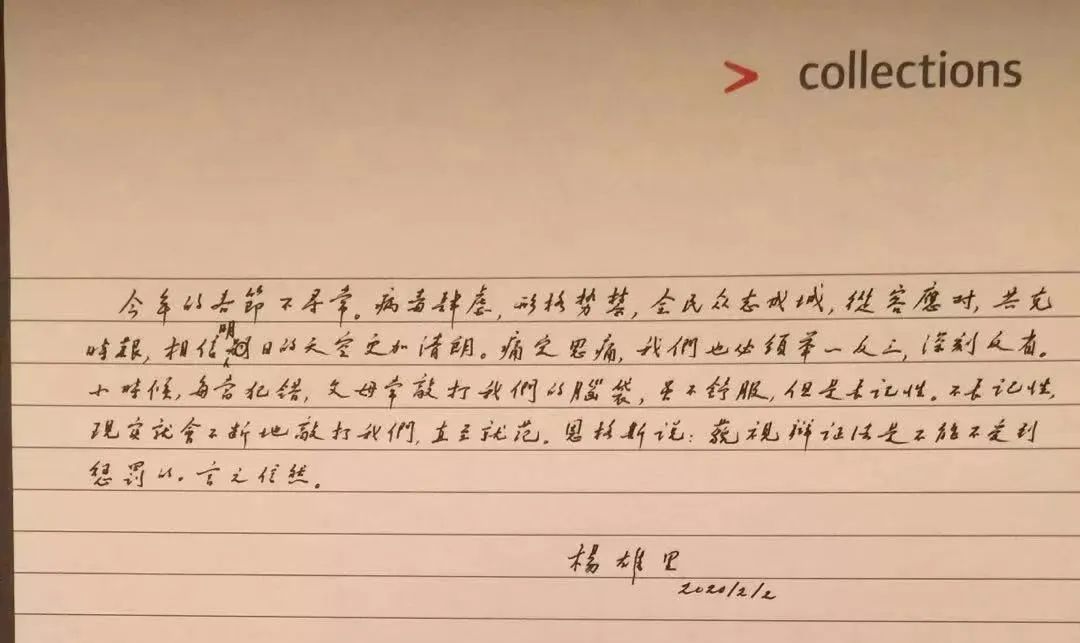 > collections
今年的春節不尋常。病毒肆虐,形格势禁,全民众志成城,從容應对,共克
時艱,相信明日的天空更加清朗。痛定思痛,我們也必須举一反三,深刻反省。
小時候,每当犯错,父母常敲打我們的腦袋,虽不舒服,但是长记性。不长记性,
现实就會不断地敲打我們,直至就范。恩格斯说:蔑视辩证法是不能不受到
惩罰的。言之信然。
楊雄里
2020/2/2